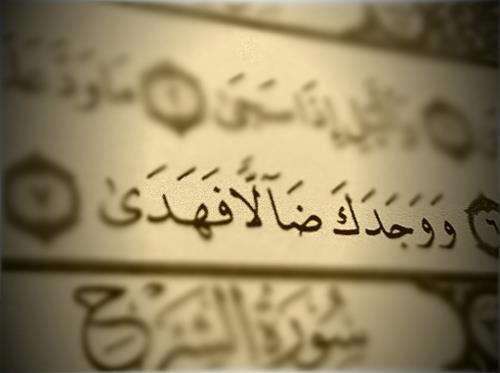 وَٱلَّيْلِ إِذَا سَجَىٰ ٢ مَا وَدَّعَكَ
٦ وَوَجَدَكَ ضَآلًّا فَهَدَىٰ ٧
سُورَةُ الشَّرْحِ